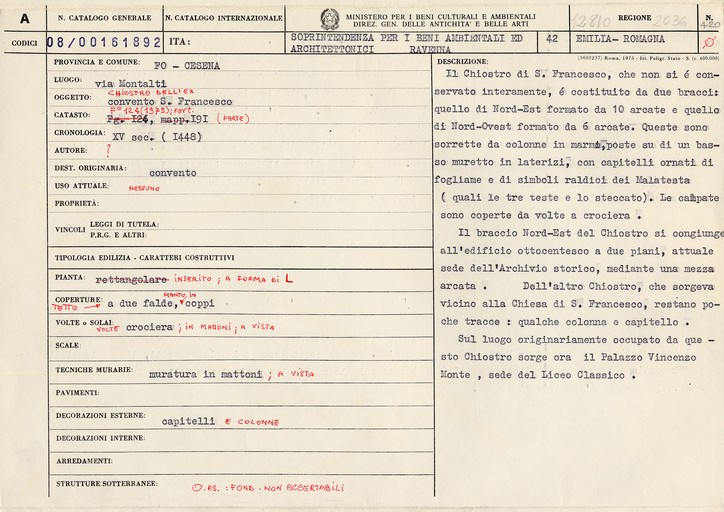 A
N. CATALOGO GENERALE
N. CATALOGO INTERNAZIONALE
MINISTERO PER I BENI CULTURALI E AMBIENTALI
DIREZ. GEN. DELLE ANTICHITA' E BELLE ARTI
12810 2036
REGIONE
N.
4-20
CODICI
08/00161892
ITA:
SOPRINTENDENZA PER I BENI AMBIENTALI ED
ARCHITETTONICI RAVENNA
42
EMILIA- ROMAGNA
Ø
(3609237) Roma, 1975 - Ist. Poligr. Stato - S. (c. 400.000)
PROVINCIA E COMUNE: FO - CESENA
LUOGO: via Montalti
CHIOSTRO DELL'EX
OGGETTO: convento S. Francesco
F° 124 (1973); part.
CATASTO: Fg. I24, mapp.I9I (PARTE)
CRONOLOGIA: XV sec. ( I448)
AUTORE: ?
DEST. ORIGINARIA: convento
USO ATTUALE: NESSUNO
PROPRIETÀ:
VINCOLI
LEGGI DI TUTELA:
P.R.G. E ALTRI:
TIPOLOGIA EDILIZIA - CARATTERI COSTRUTTIVI
PIANTA: rettangolare INSERITO; A FORMA DI L
COPERTURE: a due falde, MANTO IN coppi
TETTO →
VOLTE o SOLAI: VOLTE crociera; IN MATTONI; A VISTA
SCALE:
TECNICHE MURARIE: muratura in mattoni; A VISTA
PAVIMENTI:
DECORAZIONI ESTERNE: capitelli E COLONNE
DECORAZIONI INTERNE:
ARREDAMENTI:
STRUTTURE SOTTERRANEE: O.RS. : FOND. NON ACCERTABILI
DESCRIZIONE:
Il Chiostro di S. Francesco, che non si é con-
servato interamente, é costituito da due bracci:
quello di Nord-Est formato da 10 arcate e quello
di Nord-Ovest formato da 6 arcate. Queste sono
sorrette da colonne in marmi,poste su di un bas-
so muretto in laterizi, con capitelli ornati di
fogliame e di simboli raldici dei Malatesta
( quali le tre teste e lo steccato). Le campate
sono coperte da volte a crociera .
Il braccio Nord-Est del Chiostro si congiunge
all'edificio ottocentesco a due piani, attuale
sede dell'Archivio storico, mediante una mezza
arcata . Dell'altro Chiostro, che sorgeva
vicino alla Chiesa di S. Francesco, restano po-
che tracce : qualche colonna e capitello .
Sul luogo originariamente occupato da que -
sto Chiostro sorge ora il Palazzo Vincenzo
Monte , sede del Liceo Classico .